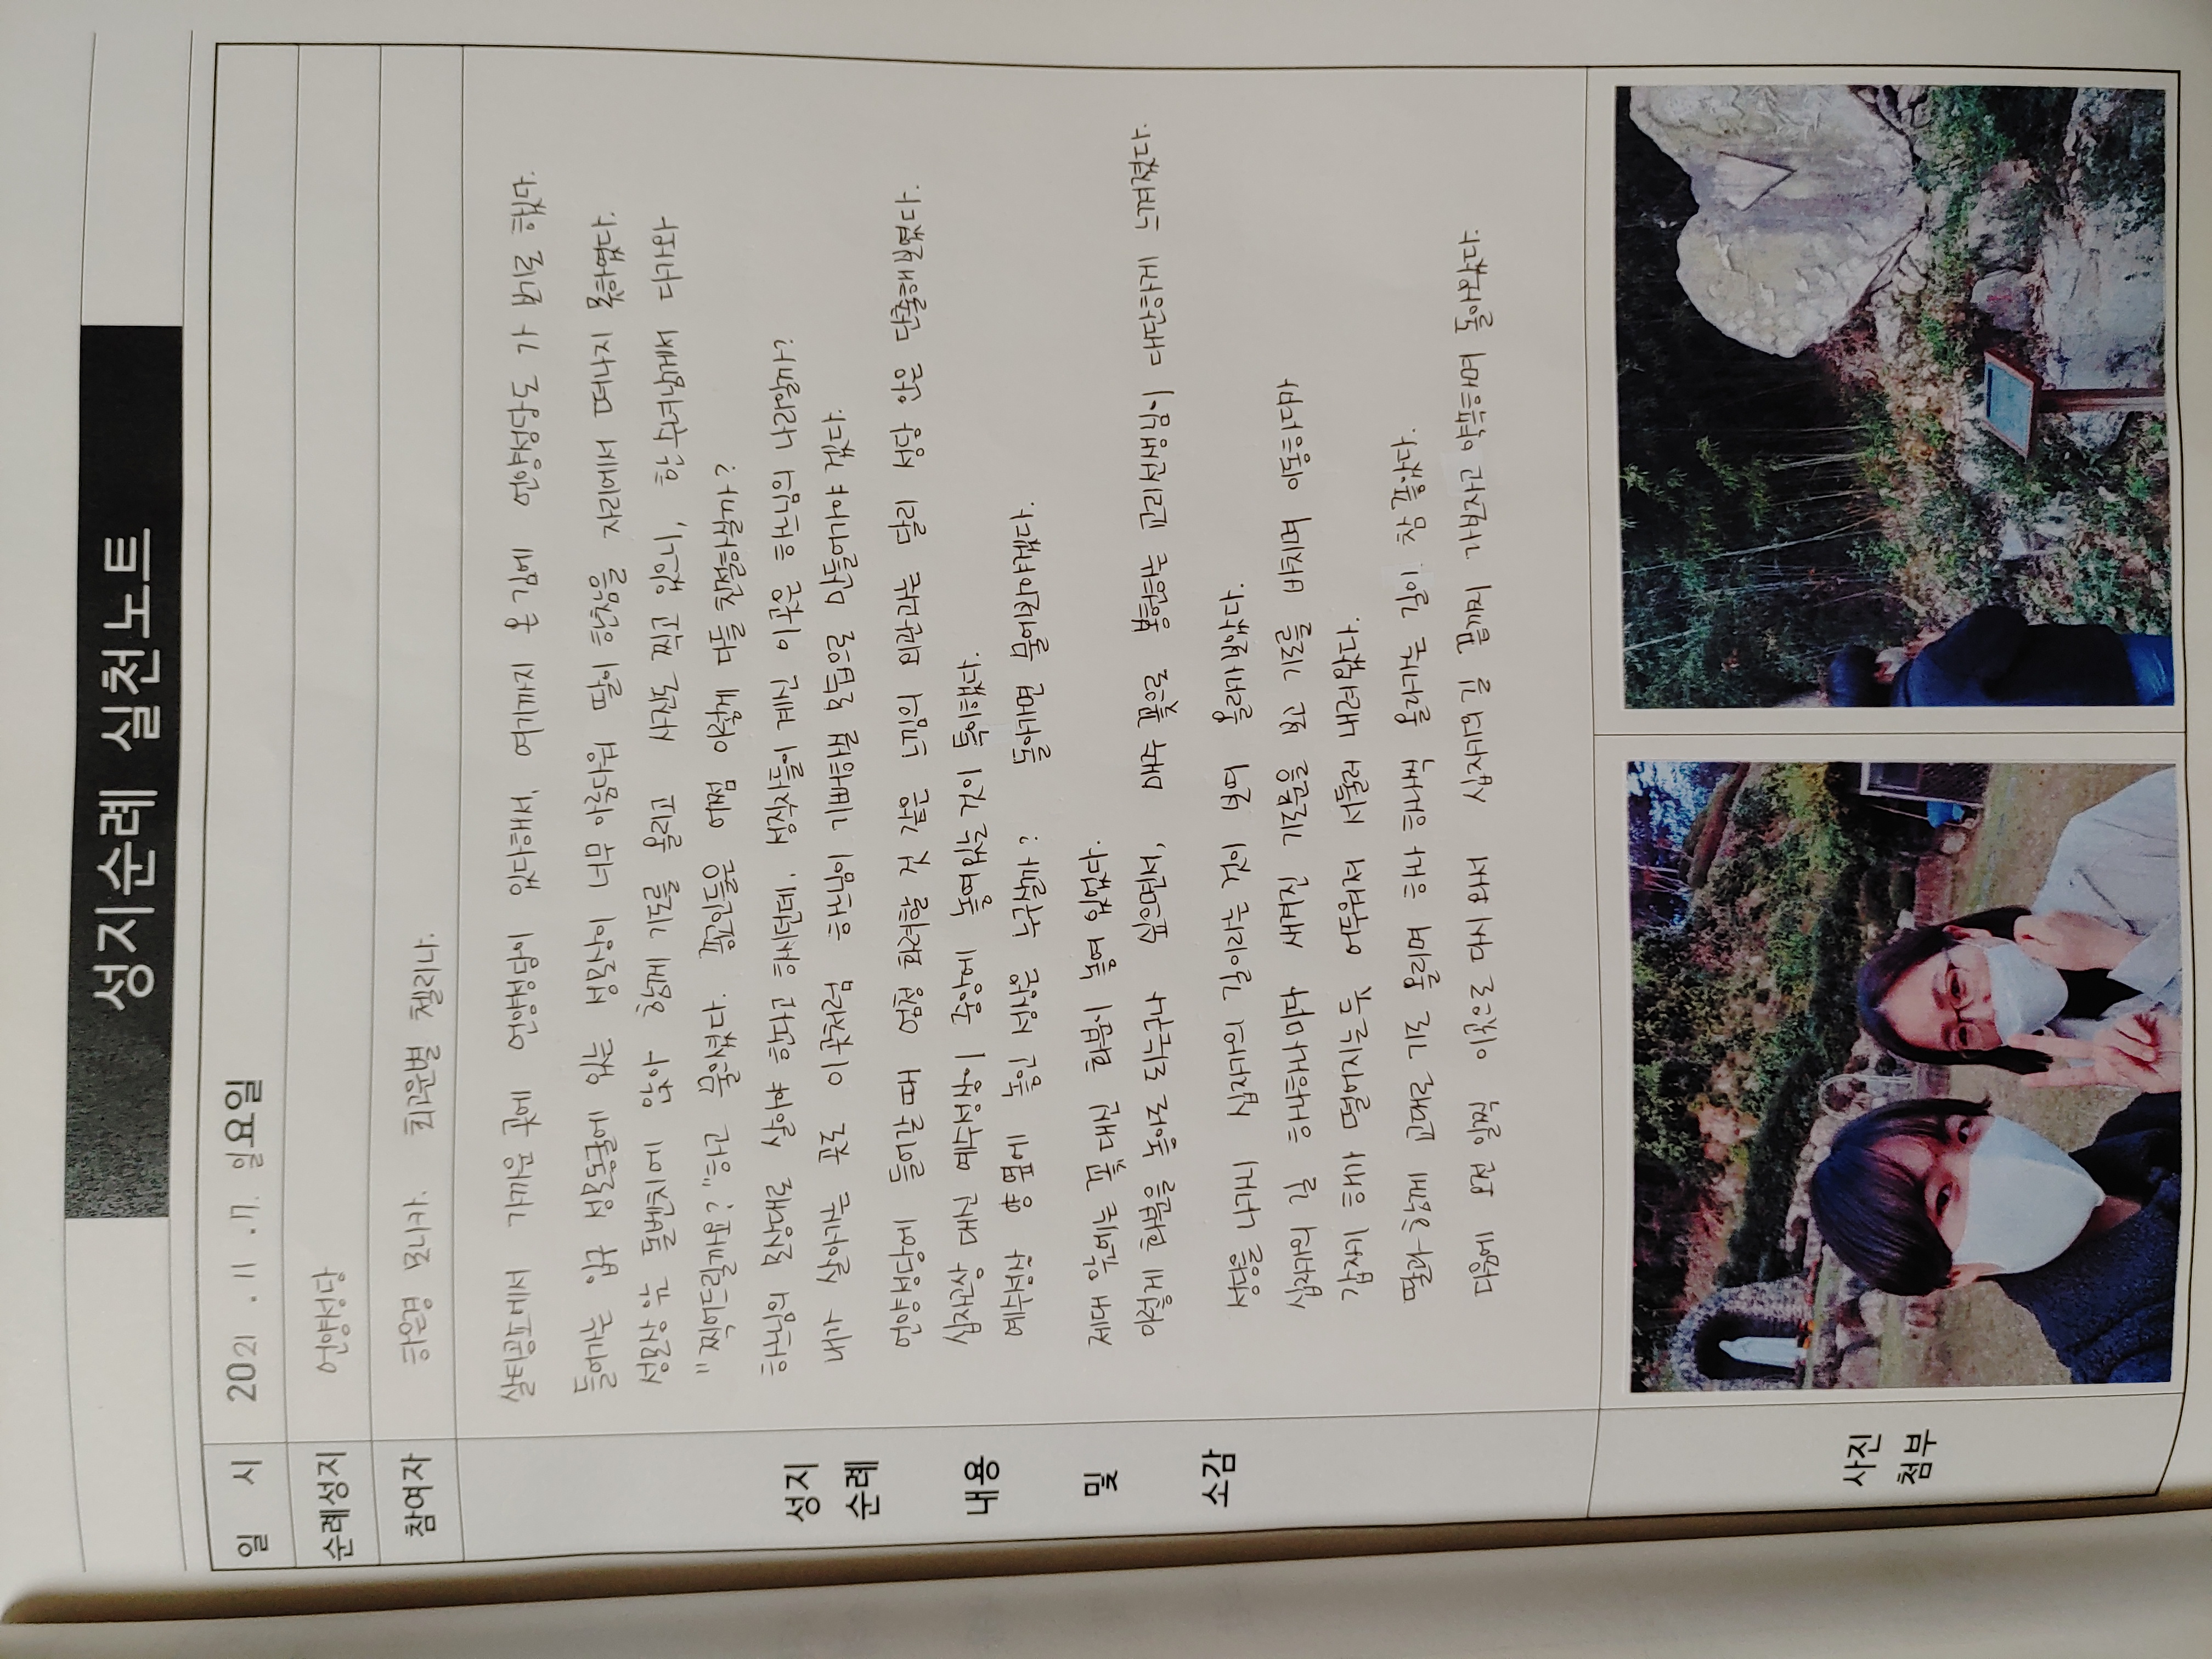 성지순례 실천노트
일 시 2021 . 11 . 17. 일요일
순례성지 언양성당
참여자 하은경 모니카. 최고운별 첼리나.
살티공소에서 가까운 곳에 언양성당이 있다해서, 여기까지 온 김에 언양성당도 가 보기로 했다.
들어가는 입구 성모동굴에 있는 성모상이 너무 아름다워 딸이 한참을 자리에서 떠나지 못하였다.
성모상 앞 돌벤치에 앉아 함께 기도를 올리고 사진도 찍고 있으니, 한 수녀님께서 다가와
"찍어드릴까요?"하고 물으셨다. 종교인들은 어쩜 이렇게 다들 친절하실까?
하느님의 모상대로 살아야 한다고 하시던데, 성직자들이 계신 이곳은 하느님의 나라일까?
내가 살아가는 곳도 이곳처럼 하느님이 기뻐하실 모습으로 만들어가야 겠다.
언양성당에 들어갈 때 엄청 화려할 것 같은 느낌의 외관과는 달리 성당 안은 단출해보였다.
십자고상 대신 예수성상이 중앙에 놓여있는 것이 특이했다.
예수성상 양 옆에 놓인 성상은 누구실까? 돌아가면 물어봐야겠다.
제대 앞에는 꽃 대신 화분이 놓여 있었다.
이렇게 화분을 놓아도 되는구나 싶으면서, 매주 꽃으로 봉헌하는 교리선생님이 대단하게 느껴졌다.
성당을 나가니 십자가의 길이라는 것이 보여 올라가보았다.
십자가의 길 하나하나마다 새겨진 기도문을 보고 기도를 바치며 이동하다가
갑자기 해가 떨어지는 듯 어두워져 서둘러 내려왔다.
딸과 함께 교대로 기도 올리며 하나 하나씩 올라가는 길이 참 좋았다.
다음에 오전 일찍 이곳으로 다시 와서 십자가의 길 끝까지 가보자고 약속하며 돌아왔다.
성지
순례
내용
및
소감
사진
첨부